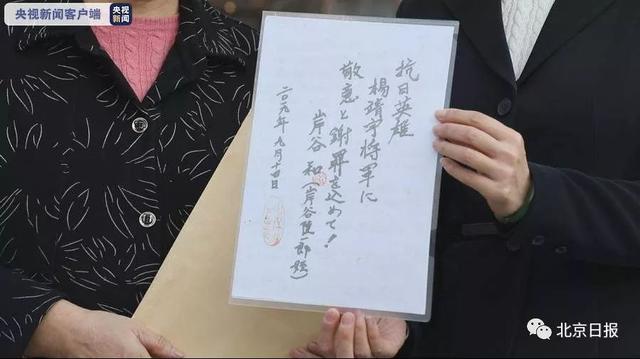 央视新闻客户端
央视
新闻
抗日英雄
楊靖宇将軍に
敬意と謝罪を込めて!
岸谷 和(岸谷隆一郎姪)
二〇一九年九月十四日
北京日报